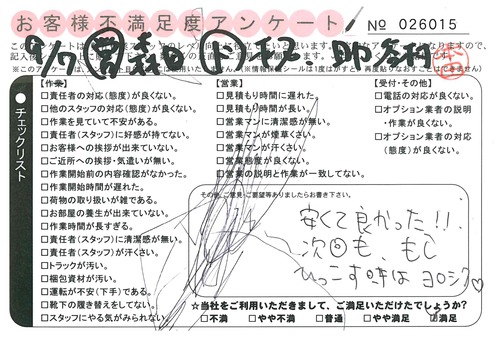 お客様不満足度アンケート
No 026015
【作業】
□責任者の対応(態度)が良くない。
□他のスタッフの対応(態度)が良くない。
□作業を見ていて不安がある。
□責任者(スタッフ)に好感が持てない。
□お客様への挨拶が出来ていない。
□ご近所への挨拶・気遣いが無い。
□作業開始前の内容確認がなかった。
□作業開始時間が遅れた。
□荷物の取り扱いが雑である。
□お部屋の養生が出来ていない。
□作業時間が長すぎる。
□責任者(スタッフ)に清潔感が無い。
□責任者(スタッフ)が汗くさい。
□トラックが汚い。
□梱包資材が汚い。
□運転が不安(下手)である。
□靴下の履き替えをしてない。
□スタッフにやる気がみられない。
【営業】
□見積もり時間に遅れた。
□見積もり時間が長い。
□営業マンに清潔感が無い。
□営業マンが煙草くさい。
□営業マンが汗くさい。
□営業態度が良くない。
□営業の説明と作業が一致してない。
【受付・その他】
□電話の対応が良くない。
□オプション業者の説明
・作業が良くない。
□オプション業者の対応
(態度)が良くない。
チェックリスト
その他、ご意見・ご要望等ありましたらお書き下さい。
安くて良かった!!
次回も、もし
ひっこす時はヨロシク♡
☆当社をご利用いただきまして、ご満足いただけたでしょうか?
□不満 □やや不満 □普通 □やや満足 ☑満足